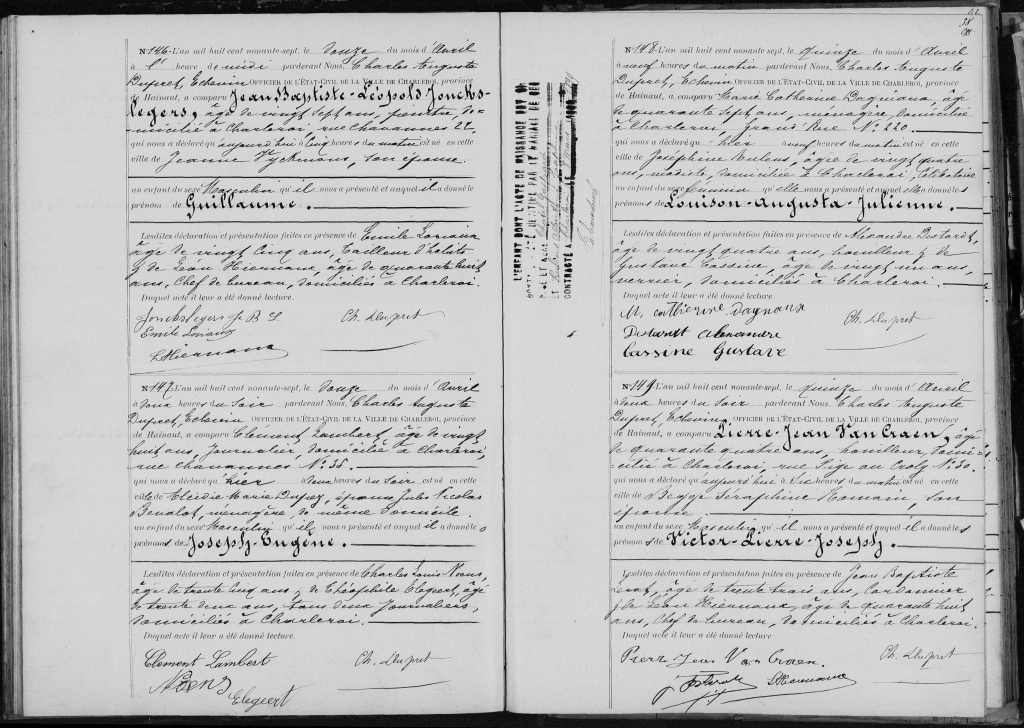 N° 146. L'an mil huit cent nonante-sept, le douze du mois d'Avril
à 1 heure de midi pardevant Nous, Charles Auguste
Dupret, Echevin OFFICIER DE L'ÉTAT-CIVIL DE LA VILLE DE CHARLEROI, province
de Hainaut, a comparu Jean-Baptiste-Léopold Joncks-
legers, âgé de vingt sept ans, peintre, do-
micilié à Charleroi, rue Chavannes 22,
qui nous a déclaré qu'aujourd'hui à cinq heures du matin est né en cette
ville de Jeanne Ryckmans, son épouse.
un enfant du sexe Masculin qu'il nous a présenté et auquel il a donné le
prénom de Guillaume.
Lesdites déclaration et présentation faites en présence de Emile
âgé de vingt cinq ans, tailleur d'habits
& de Léon Hiernaux, âgé de quarante huit
ans, Chef de bureau, domiciliés à Charleroi.
Duquel acte il leur a été donné lecture.
Jonckslegers J B L Ch. Dupret
Emile
L Hiernaux
N° 147. L'an mil huit cent nonante-sept, le douze du mois d'Avril
à deux heures du soir pardevant Nous, Charles Auguste
Dupret, Echevin OFFICIER DE L'ÉTAT-CIVIL DE LA VILLE DE CHARLEROI, province
de Hainaut, a comparu Clément Lambert, âgé de vingt
huit ans, journalier, domicilié à Charleroi,
rue Chavannes N° 35.
qui nous a déclaré qu'hier à deux heures du soir est né en cette
ville de Elcidie Marie Dupuy, épouse Jules Nicolas
Benalot, ménagère, de même domicile.
un enfant du sexe Masculin qu'il nous a présenté et auquel il a donné les
prénoms de Joseph-Eugène.
Lesdites déclaration et présentation faites en présence de Charles Louis Noens,
âgé de trente cinq ans, & de Théophile Elegeert, âgé
de trente deux ans, tous deux journaliers,
domiciliés à Charleroi.
Duquel acte il leur a été donné lecture.
Clement Lambert Ch. Dupret
Noens
Elegeert
L'ENFANT DONT L'ACTE DE NAISSANCE EST CI-
CONTRE A ÉTÉ LÉGITIMÉ PAR LE MARIAGE DE SES
PÈRE ET MÈRE
ET
CONTRACTÉ A
38
N° 148. L'an mil huit cent nonante-sept, le quinze du mois d'Avril
à neuf heures du matin pardevant Nous, Charles Auguste
Dupret, Echevin OFFICIER DE L'ÉTAT-CIVIL DE LA VILLE DE CHARLEROI, province
de Hainaut, a comparu Marie Catherine Dagniaux, âgée
de quarante sept ans, ménagère, domiciliée
à Charleroi, Grand'Rue N° 220.
qui nous a déclaré qu'hier à neuf heures du matin est né en cette
ville de Joséphine Mulens, âgée de vingt quatre
ans, modiste, domiciliée à Charleroi, célibataire
un enfant du sexe féminin qu'elle nous a présenté et auquel elle a donné les
prénoms de Louison-Augusta-Julienne.
Lesdites déclaration et présentation faites en présence de Alexandre Destardt,
âgé de vingt quatre ans, houilleur & de
Gustave Cassine, âgé de vingt un ans,
verrier, domiciliés à Charleroi.
Duquel acte il leur a été donné lecture
M. Catherine Dagniaux Ch. Dupret
Destardt Alexandre
Cassine Gustave
N° 149. L'an mil huit cent nonante-sept, le quinze du mois d'Avril
à deux heures du soir pardevant Nous, Charles Auguste
Dupret, Echevin OFFICIER DE L'ÉTAT-CIVIL DE LA VILLE DE CHARLEROI, province
de Hainaut, a comparu Pierre-Jean Van Craen, âgé
de quarante quatre ans, houilleur, domi-
cilié à Charleroi, rue Pige au Croly N° 30.
qui nous a déclaré qu'aujourd'hui à dix heures du matin est né en cette
ville de Begge Séraphine Romain, son
épouse.
un enfant du sexe Masculin qu'il nous a présenté et auquel il a donné les
prénoms de Victor-Pierre-Joseph.
Lesdites déclaration et présentation faites en présence de Jean Baptiste
âgé de trente trois ans, cordonnier
& de Léon Hiernaux, âgé de quarante huit
ans, Chef de bureau, domiciliés à Charleroi.
Duquel acte il leur a été donné lecture
Pierz Jean Van Craen. Ch. Dupret
L Hiernaux